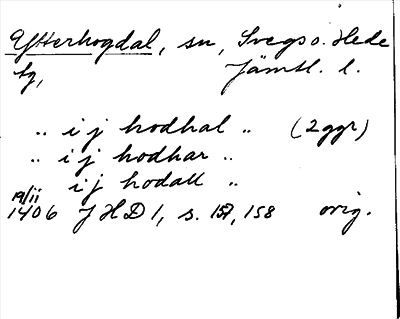 Ytterhogdal, sn, Svegs o. Hede
tg, Jämtl. l.
„ i j hodhal „ (2 ggr)
„ i j hodhar „
„ i j hodall „
19/11
1406 JHD 1, s. 157, 158 orig.